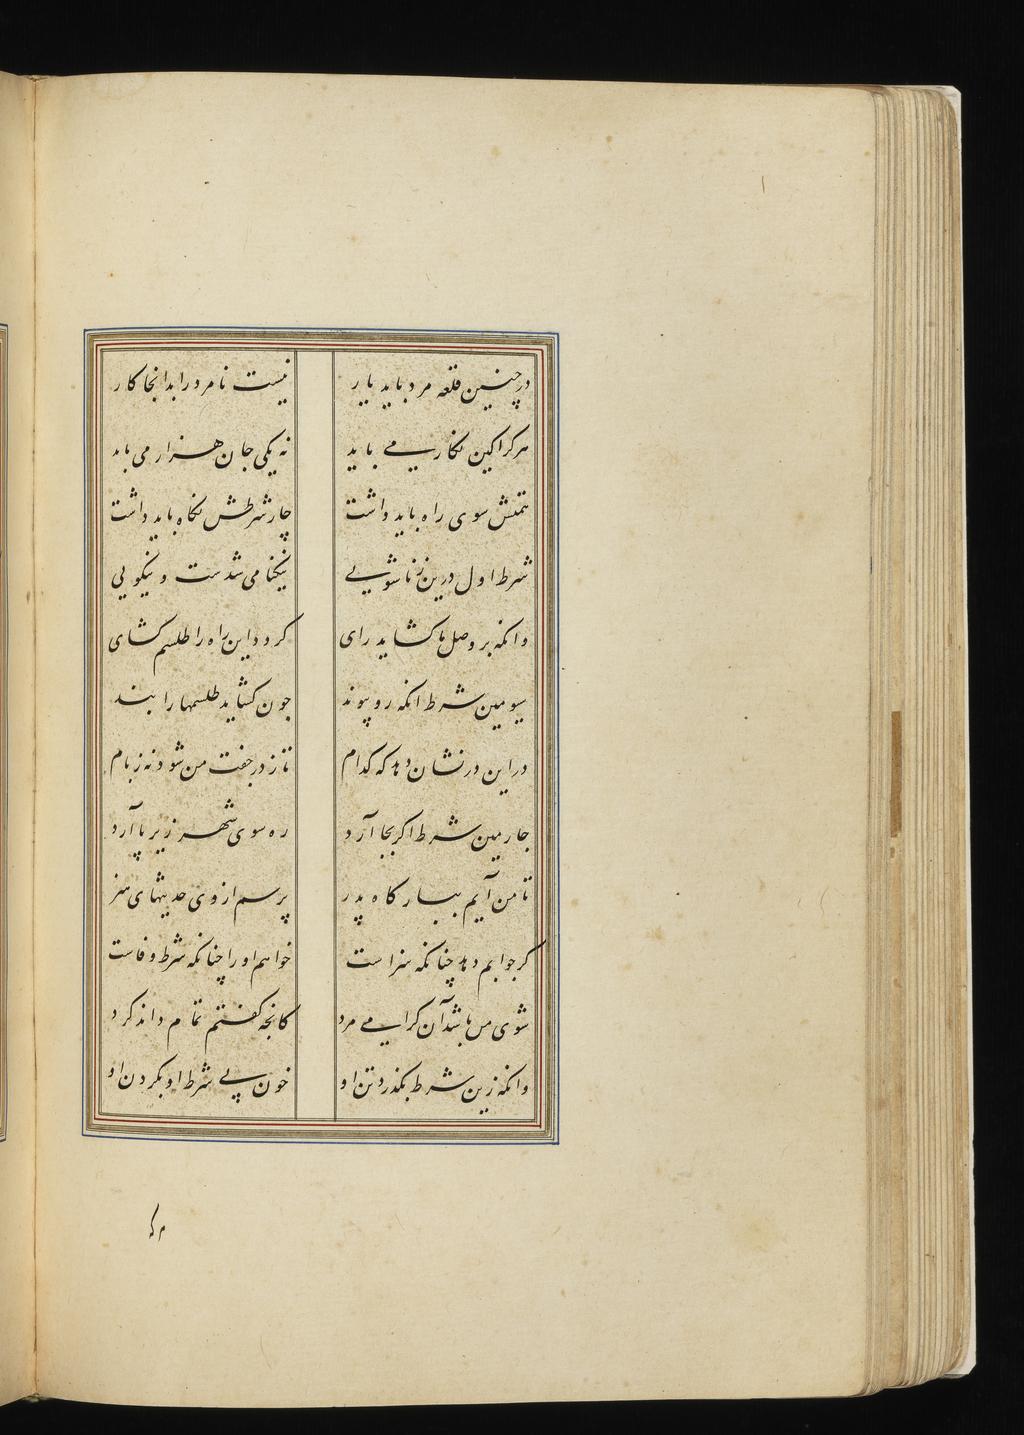 در چنین قلعه مرد باید یار نیست نامرد را بدانجا کار
هر کرا کین نگار می باید نه یکی جان هزار می باید
همتش سوی راه باید داشت چار شرطش نگاه باید داشت
شرط اول درین زناشویی نیکنامی شدست و نیکویی
وانکه بر وصل ما کشاید رای کردد این راه را طلسم کشای
سیومین شرط انکه رو پیوند جون کشاید طلسمها را بند
در این در نشان دهد که کدام تا ز در جفت من شود نه ز بام
جارمین شرط اکر بجا آرد ره سوی شهر زیر پا آرد
تا من آیم ببار کاه پدر پرسم از وی حدیثهای هنر
کر جوابم دهد چنانکه سزاست خواهم او را چنانکه شرط وفاست
شوی من باشد آن کرامی مرد کانجه کفتم تمام داند کرد
وانکه زین شرط بکذرد تن او خون بی شرط او بکردن او